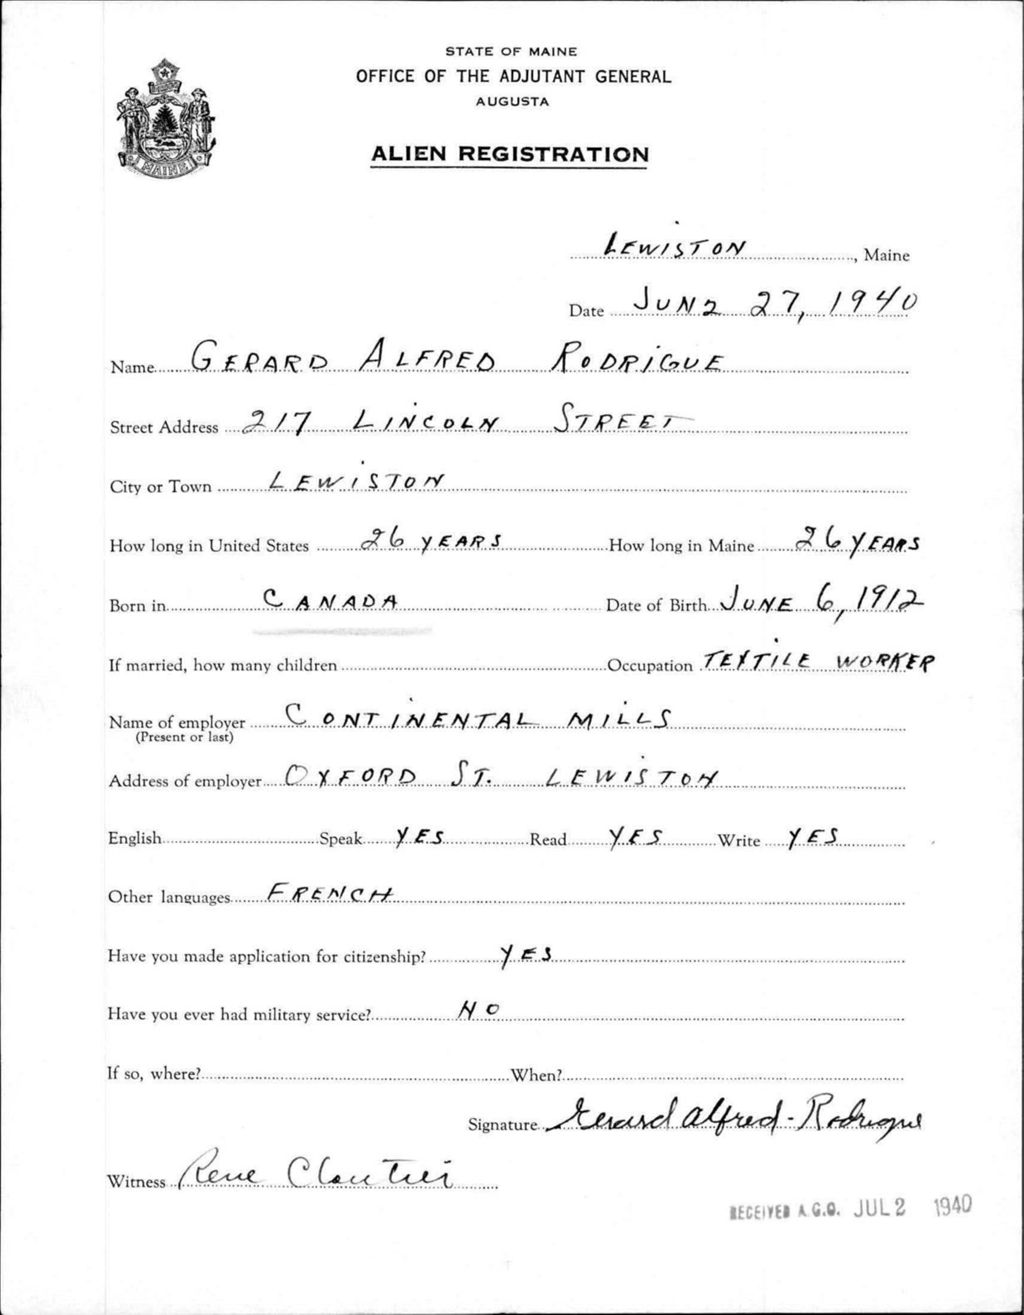 STATE OF MAINE
OFFICE OF THE ADJUTANT GENERAL
AUGUSTA
ALIEN REGISTRATION
MAINE
LEWISTON, Maine
Date JUNE 27, 1940
Name GERARD ALFRED RODRIGUE
Street Address 217 LINCOLN STREET
City or Town LEWISTON
How long in United States 26 YEARS How long in Maine 26 YEARS
Born in CANADA Date of Birth JUNE 6, 1912
If married, how many children Occupation TEXTILE WORKER
Name of employer CONTINENTAL MILLS
(Present or last)
Address of employer OXFORD ST. LEWISTON
English Speak YES Read YES Write YES
Other languages FRENCH
Have you made application for citizenship? YES
Have you ever had military service? NO
If so, where? When?
Signature Gerard Alfred - Rodrigue
Witness Rene Cloutier
RECEIVED A.G.O. JUL 2 1940